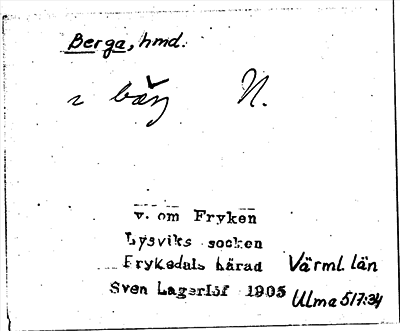 Berga, hmd.
N.
v. om Fryken
Lysviks socken
Frykedals härad Värml. län
Sven Lagerlöf 1905 Ulma 517:34